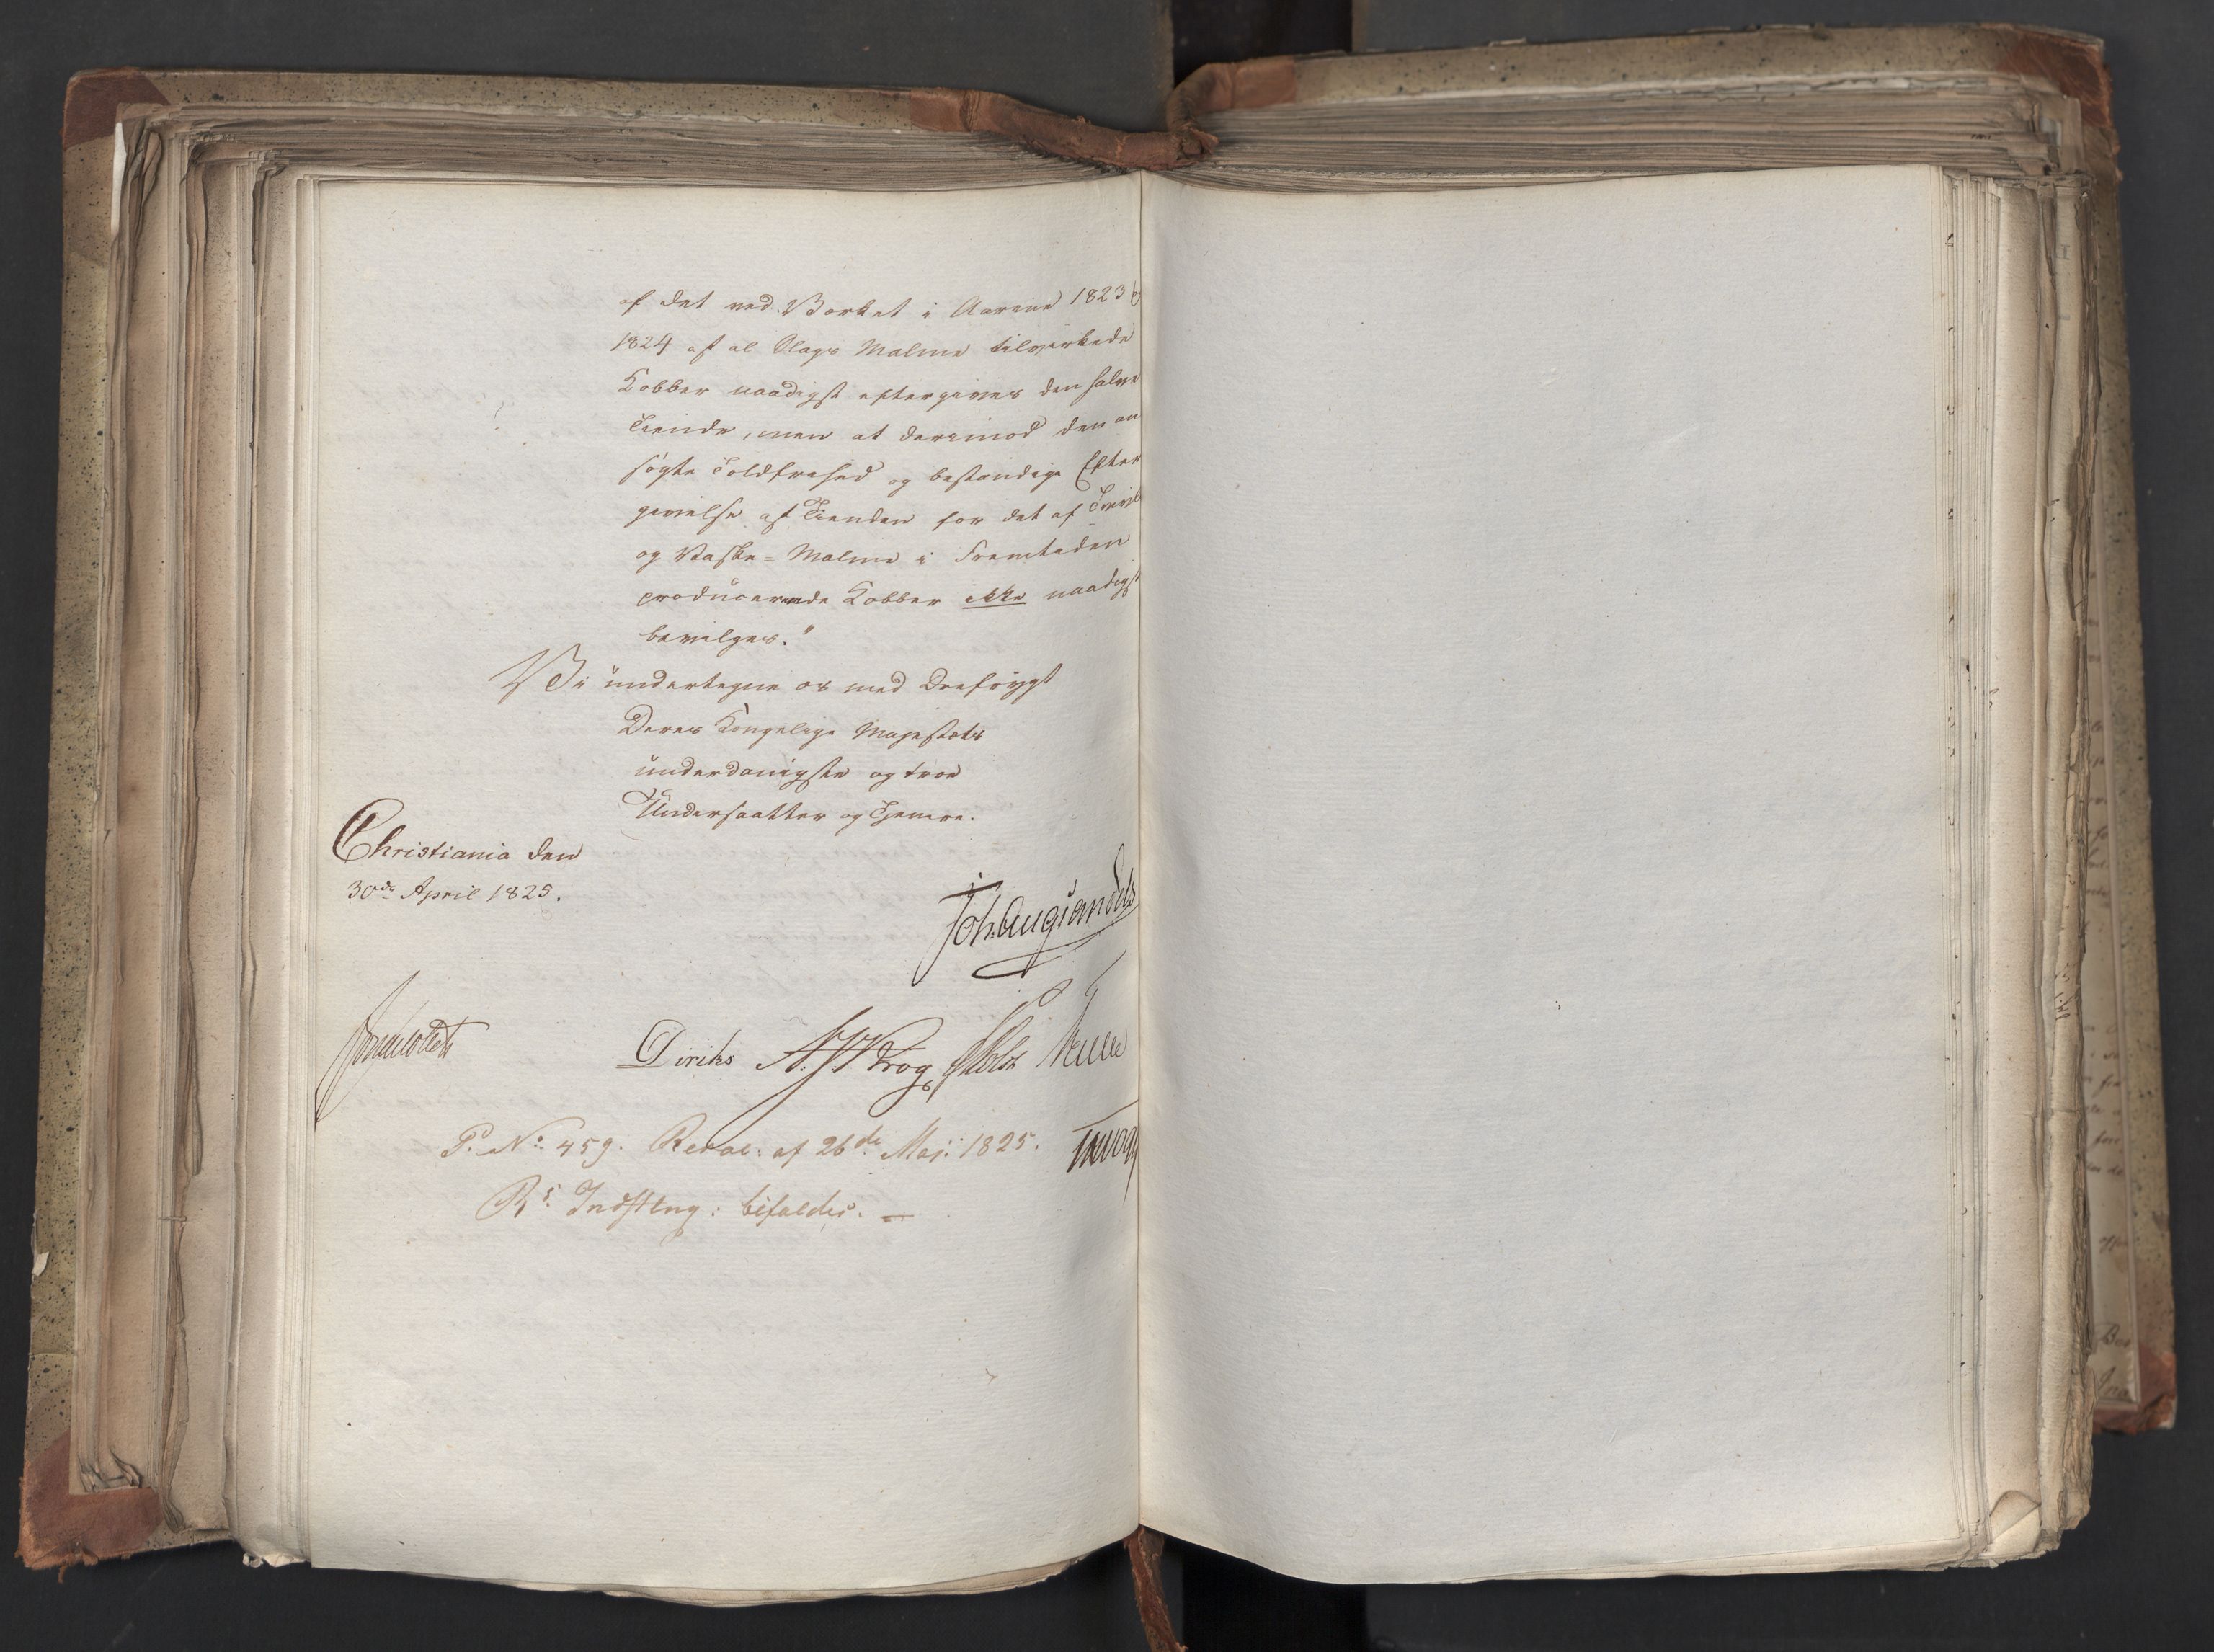 af det ved Værket i Aarene 1823 og
1824 af al Slags Malme tilvirkede
Kobber naadigst eftergives den halve
Tiende, men at derimod den an
søgte Toldfrihed og bestandige Efter
givelse af Tienden for det af
og Vaske-Malme i Fremtiden
producerende Kobber ikke naadigst
bevilges."
Vi undertegne os med Dyb­frygt
Deres Kongelige Majestæts
underdanigste og troe
Undersaatter og Tjenere.
Christiania den
30de April 1825.
Joh. Aug. Sandels
Sommerhielm
Diriks A. S. Krog Holst
P. No 459. Resol: af 26de Maj: 1825.
Rs Indstlng: bifaldes. —